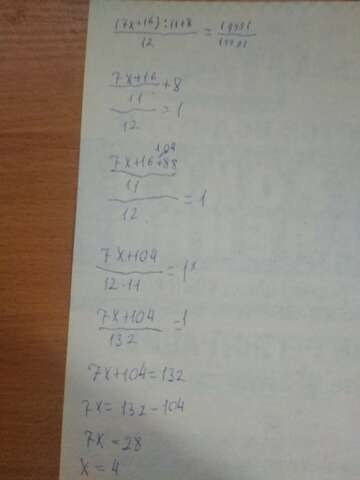 (7x+16):11+8 / 12 =
7x+16 / 11 +8 / 12 = 1
104
7x+16+88 / 11 / 12 = 1
7x+104 / 12·11 = 1
7x+104 / 132 =1
7x+104=132
7x=132-104
7x=28
x=4